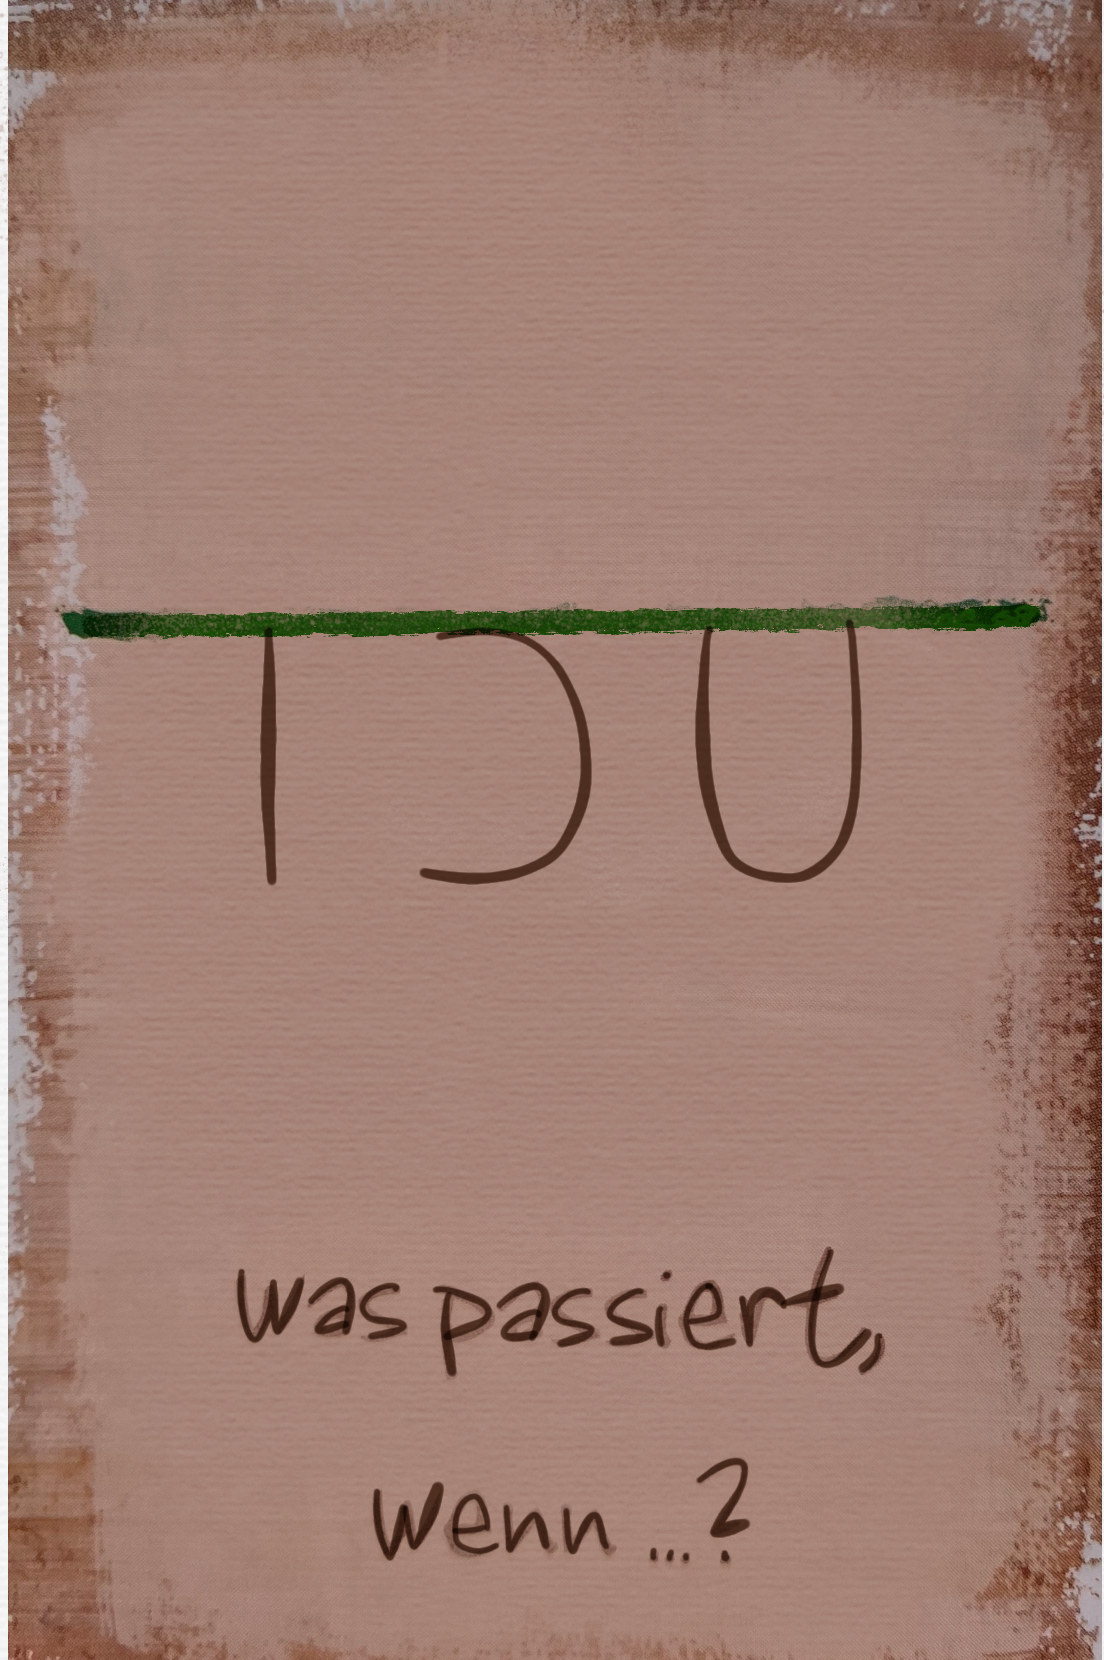 I Ɔ U
was passiert,
wenn ...?